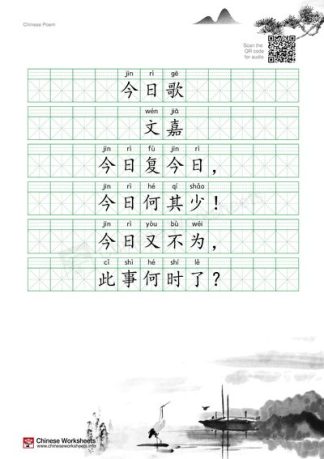 Chinese Poem
Scan the
QR code
for audio
jīn rì gē
今日歌
wén jiā
文嘉
jīn rì fù jīn rì
今日复今日，
jīn rì hé qí shǎo
今日何其少！
jīn rì yòu bù wéi
今日又不为，
cǐ shì hé shí lě
此事何时了？
Chinese Worksheets
www.chineseworksheets.info